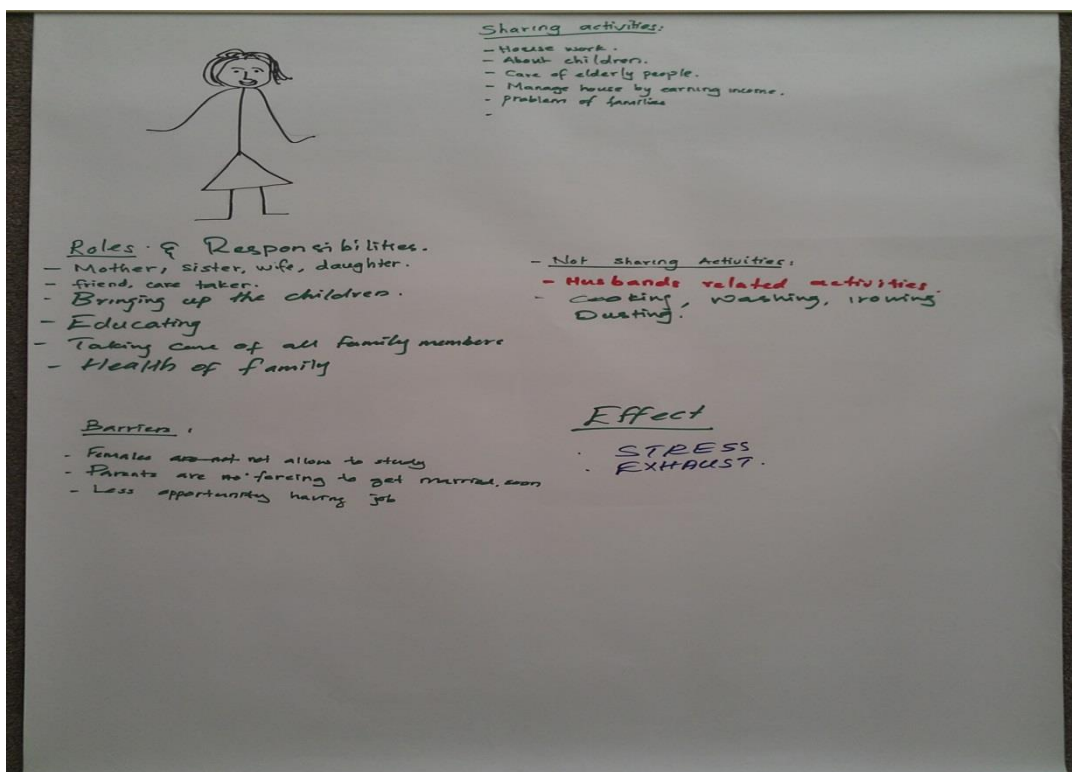 Sharing activities:
- House work.
- About children.
- Care of elderly people.
- Manage house by earning income.
- problem of families
-
Roles & Responsibilities.
- Mother, sister, wife, daughter.
- friend, care taker.
- Bringing up the children.
- Educating
- Taking care of all family members
- Health of family
- Not sharing Activities:
- Husbands related activities.
- Cooking, washing, ironing
Dusting.
Barriers:
- Females are not not allow to study
- Parents are no forcing to get married, soon
- Less opportunity having job
Effect
. STRESS
. EXHAUST.